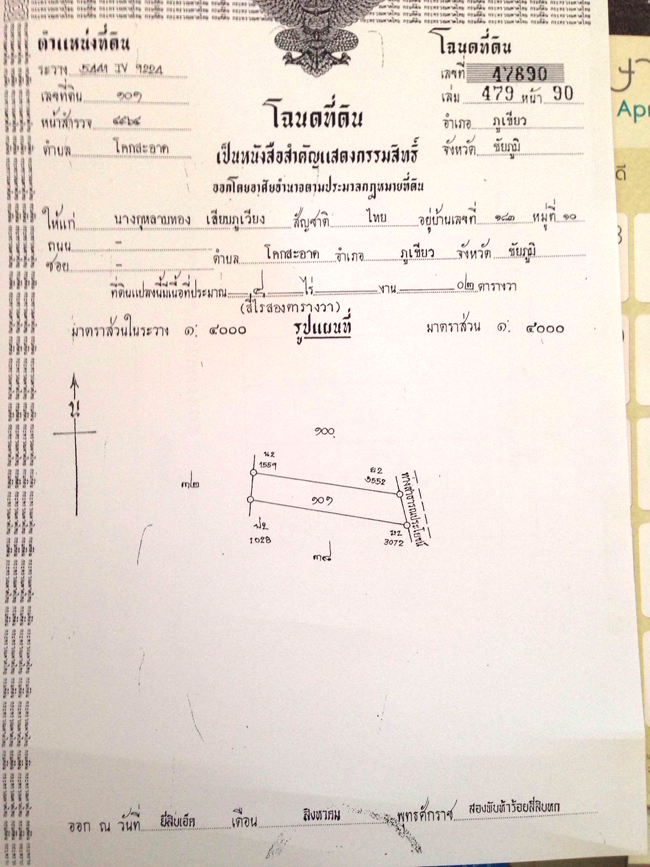 ตำแหน่งที่ดิน
ระวาง 5441 IV 9224
เลขที่ดิน ๑๐๑
หน้าสำรวจ
ตำบล โคกสะอาด
โฉนดที่ดิน
เลขที่ 47890
เล่ม 479 หน้า 90
อำเภอ ภูเขียว
จังหวัด ชัยภูมิ
โฉนดที่ดิน
เป็นหนังสือสำคัญแสดงกรรมสิทธิ์
ออกโดยอาศัยอำนาจตามประมวลกฎหมายที่ดิน
ให้แก่ นางกุหลาบทอง เสียมภูเวียง สัญชาติ ไทย อยู่บ้านเลขที่ ๑๘๓ หมู่ที่ ๑๐
ถนน - ตำบล โคกสะอาด อำเภอ ภูเขียว จังหวัด ชัยภูมิ
ซอย -
ที่ดินแปลงนี้มีเนื้อที่ประมาณ ๔ ไร่ - งาน ๐๒ ตารางวา
(สี่ไร่สองตารางวา)
มาตราส่วนในระวาง ๑: ๔๐๐๐ รูปแผนที่ มาตราส่วน ๑: ๔๐๐๐
น
๑๐๐
๓๒
น2
1559
ย2
9552
๑๐๑
ทางสาธารณประโยชน์
1028
3072
๓๘
ออก ณ วันที่ ยี่สิบเอ็ด เดือน สิงหาคม พุทธศักราช สองพันห้าร้อยสี่สิบหก
Apr